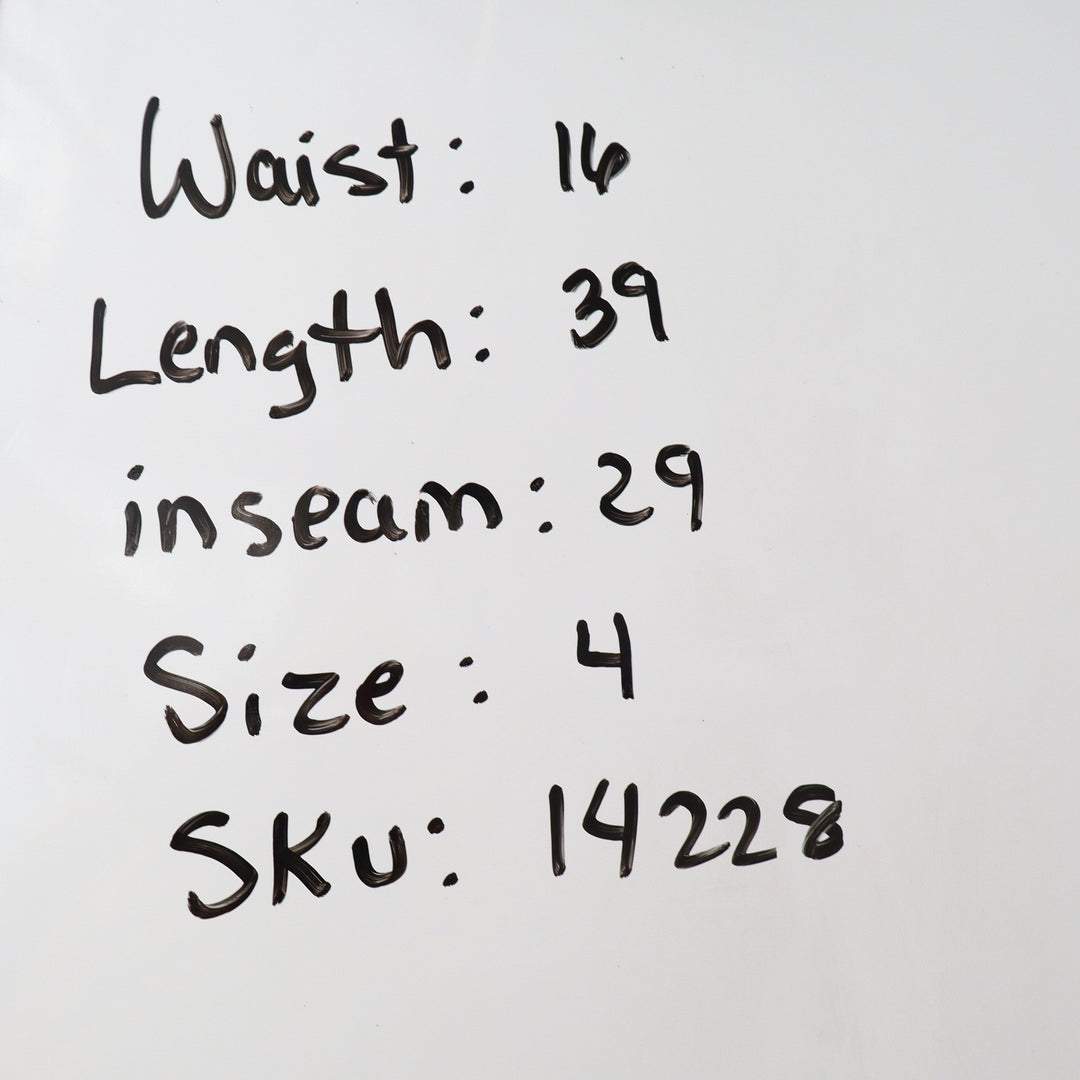 Waist: 16
Length: 39
inseam: 29
Size: 4
SKU: 14228